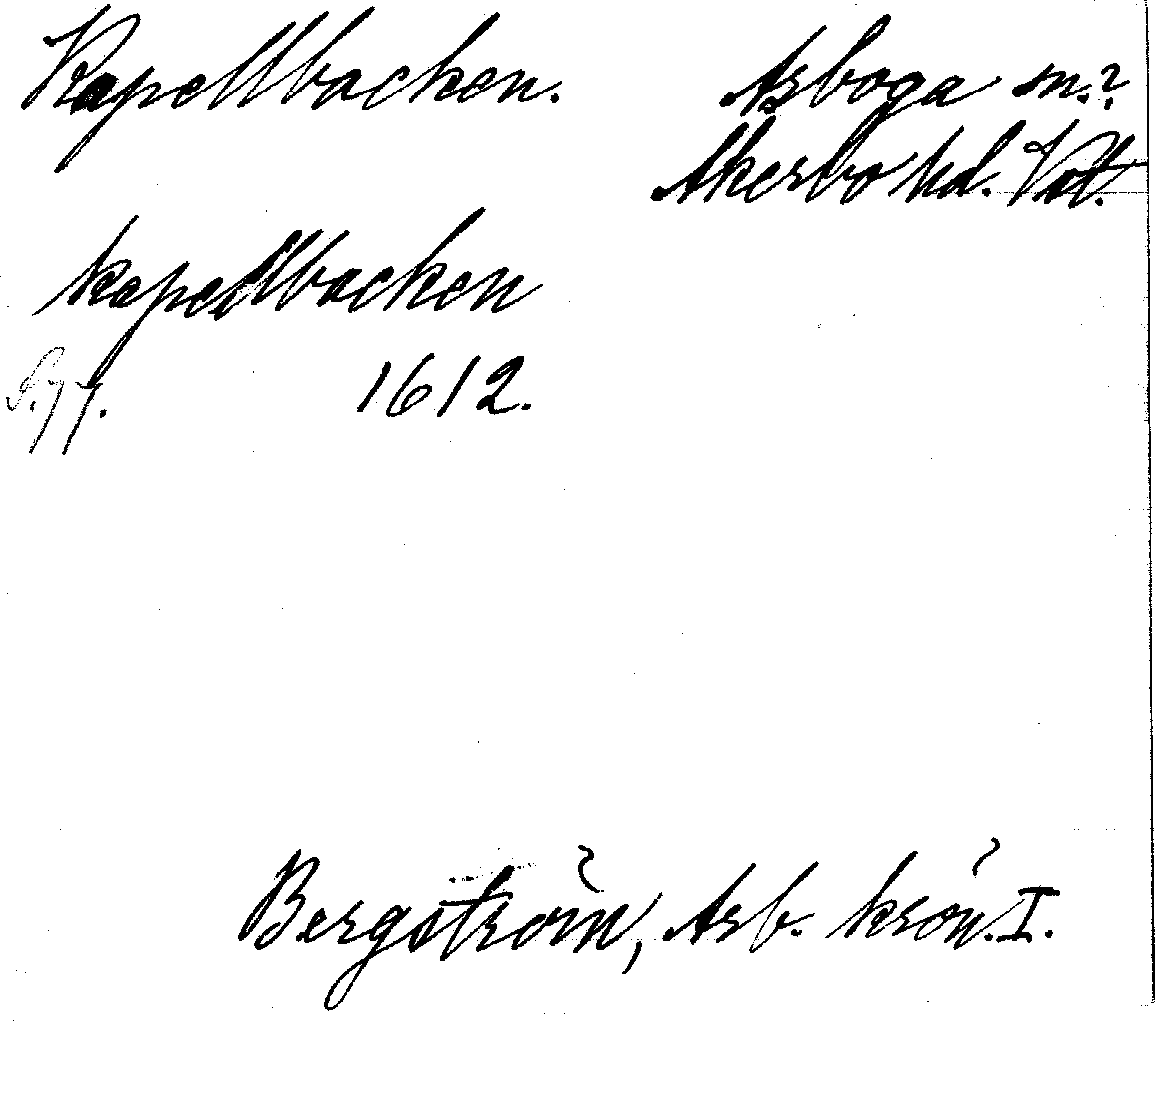 Kapellbacken. Arboga sn.?
Åkerbo hd. Vstl.
kapellbacken
S. 77. 1612.
Bergström, Arb. krön. I.